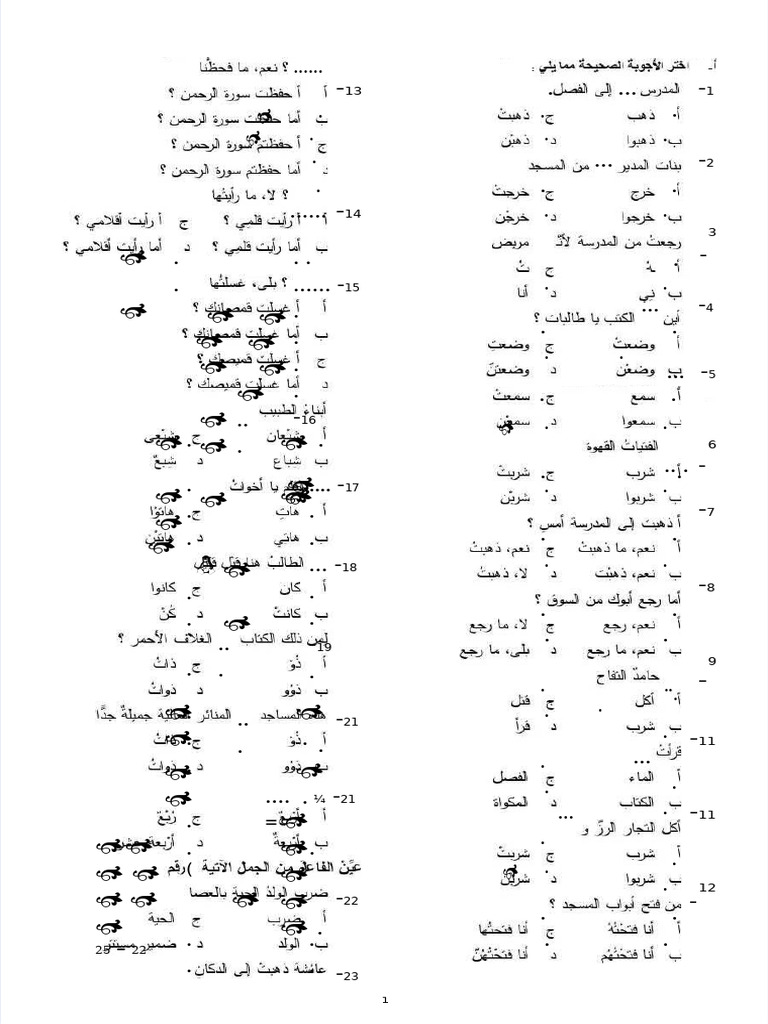 أ- اختر الأجوبة الصحيحة مما يلي :
1- المدرس ... إلى الفصل.
أ. ذهب ج. ذهبتْ
ب. ذهبوا د. ذهبْن
2- بنات المدير ... من المسجد
أ. خرج ج. خرجتْ
ب. خرجوا د. خرجْن
3- رجعتُ من المدرسة لأنّـ مريض
أ. ـهُ ج تُ
ب. ـنِي د. أنا
4- أين ... الكتب يا طالبات ؟
أ. وضعتْ ج. وضعتِ
ب. وضعْن د. وضعتنّ
5- ...
أ. سمع ج. سمعتْ
ب. سمعوا د. سمعْن
6- الفتياتُ القهوة
أ. شرب ج. شربتْ
ب. شربوا د. شربْن
7- أ ذهبت إلى المدرسة أمسِ ؟
أ. نعم، ما ذهبتُ ج. نعم، ذهبتُ
ب. نعم، ذهبْت د. لا، ذهبتُ
8- أما رجع أبوك من السوق ؟
أ. نعم، رجع ج. لا، ما رجع
ب. نعم، ما رجع د. بلى، ما رجع
9- حامدٌ التفاح
أ. أكل ج. قتل
ب. شرب د. قرأ
11- قرأتُ ...
أ. الماء ج. الفصل
ب. الكتاب د. المكواة
11- أكل التجار الرزّ و ...
أ. شرب ج. شربتْ
ب. شربوا د. شربْن
12- من فتح أبواب المسجد ؟
أ. أنا فتحْتُهُ ج. أنا فتحتُها
ب. أنا فتحْتُهُم د. أنا فتحْتُهُنّ
13- ...... ؟ نعم، ما فحظْنا
أ. أ حفظت سورة الرحمن ؟
ب. أما حفظت سورة الرحمن ؟
ج. أ حفظتم سورة الرحمن ؟
د. أما حفظتم سورة الرحمن ؟
14- ...... ؟ لا، ما رأيتُها
أ. أ رأيت قلمِي ؟ ج. أ رأيت أقلامي ؟
ب. أما رأيت قلمِي ؟ د. أما رأيت أقلامي ؟
15- ...... ؟ بلى، غسلتُها
أ. أ غسلت قمصانك ؟
ب. أما غسلت قمصانك ؟
ج. أ غسلت قميصك ؟
د. أما غسلت قميصك ؟
16- أبناءُ الطبيب ..
أ. شبْعان ج. شبْعى
ب. شِباع د. شِبعٌ
17- .... يا أخواتُ
أ. هاتِ ج. هاتوْا
ب. هاتي د. هاتيْن
18- ... الطالبُ هنا قبل
أ. كان ج. كانوا
ب. كانتْ د. كُنّ
19- لِمن ذلك الكتاب .. الغلاف الأحمر ؟
أ. ذُوْ ج. ذاتُ
ب. ذوُو د. ذواتُ
21- المساجد .. المنائر جميلةٌ جدًّا
أ. ذُوْ ج. ذاتُ
ب. ذوُو د. ذواتُ
21- ¼ = ....
أ. ج. رُبْعٌ
ب. أربعةٌ د.
عيِّنْ الفاعل من الجمل الآتية ) رقم 22 – 25
22- ضرب الولدُ الحيةَ بالعصا
أ. ضرب ج. الحية
ب. الولد د. ضمير مستتر
23- عائشة ذهبتْ إلى الدكانِ.
1